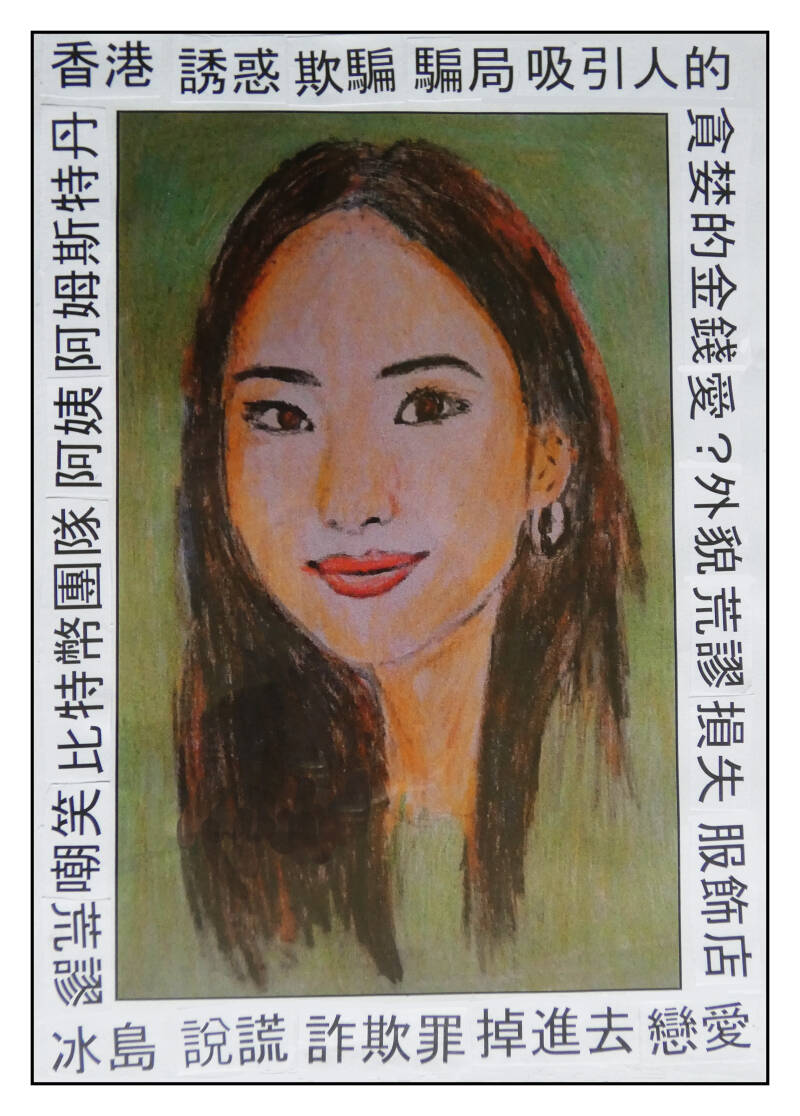 香港 誘惑 欺騙 騙局 吸引人的
貪婪的金錢愛？外貌 荒謬 損失 服飾店
冰島 說謊 詐欺罪 掉進去 戀愛
荒謬 嘲笑 比特幣團隊 阿姨 阿姆斯特丹